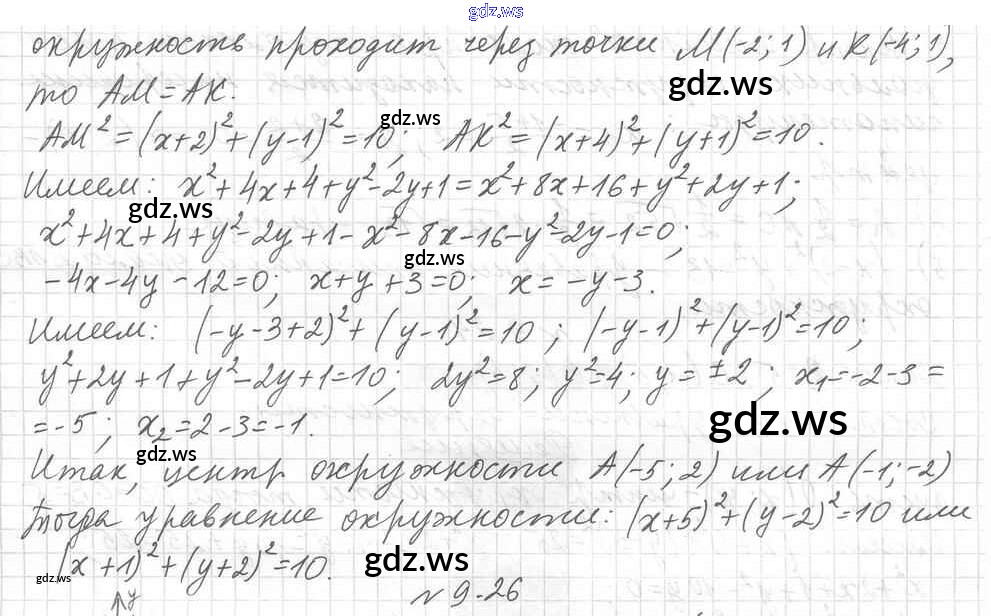 gdz.ws
окружность проходит через точки M(-2; 1) и K(-4; 1),
gdz.ws
то AM = AK.
gdz.ws
AM² = (x+2)² + (y-1)² = 10; AK² = (x+4)² + (y+1)² = 10.
Имеем: x² + 4x + 4 + y² - 2y + 1 = x² + 8x + 16 + y² + 2y + 1;
gdz.ws
x² + 4x + 4 + y² - 2y + 1 - x² - 8x - 16 - y² - 2y - 1 = 0;
gdz.ws
-4x - 4y - 12 = 0; x + y + 3 = 0; x = -y - 3.
Имеем: (-y - 3 + 2)² + (y - 1)² = 10; (-y - 1)² + (y - 1)² = 10;
y² + 2y + 1 + y² - 2y + 1 = 10; 2y² = 8; y² = 4; y = ±2; x₁ = -2 - 3 =
gdz.ws
= -5; x₂ = 2 - 3 = -1.
gdz.ws
Итак, центр окружности A(-5; 2) или A(-1; -2)
Тогда уравнение окружности: (x+5)² + (y-2)² = 10 или
gdz.ws
(x+1)² + (y+2)² = 10.
gdz.ws
N 9.26
y